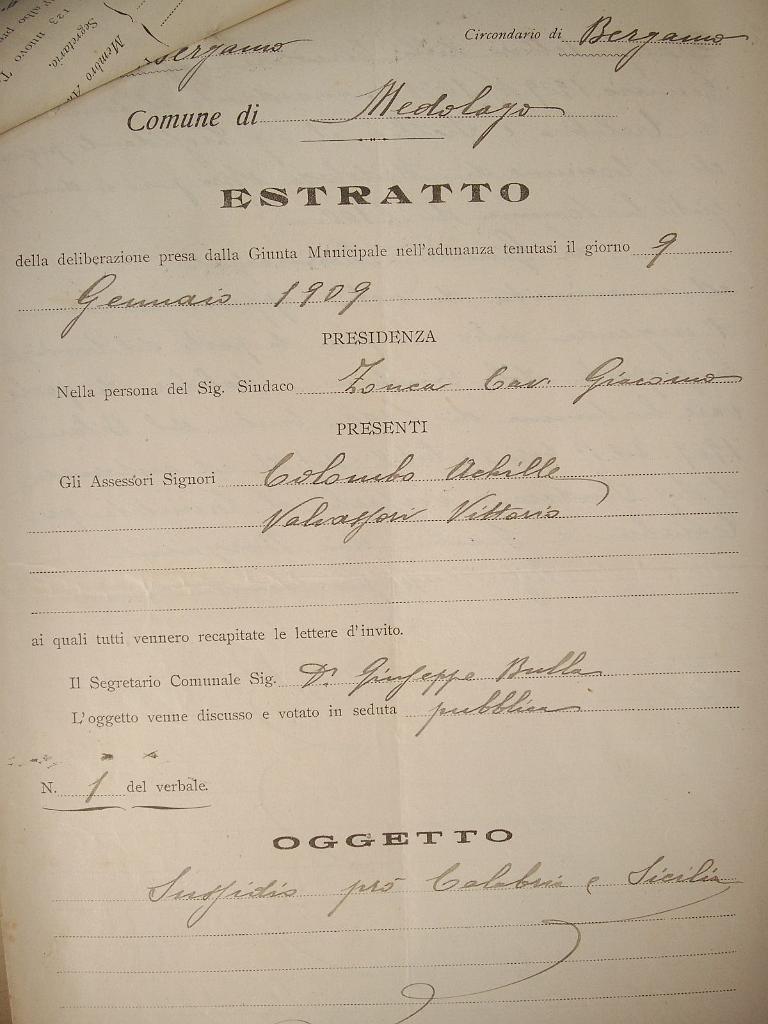 albo pr
123 nuovo T
Segretario.
Membro A
Bergamo
Circondario di Bergamo
Comune di Medolago
ESTRATTO
della deliberazione presa dalla Giunta Municipale nell'adunanza tenutasi il giorno 9
Gennaio 1909
PRESIDENZA
Nella persona del Sig. Sindaco Zonca Cav. Giacomo
PRESENTI
Gli Assessori Signori Colombo Achille
Valvassori Vittorio
ai quali tutti vennero recapitate le lettere d'invito.
Il Segretario Comunale Sig. Dr Giuseppe Bulla
L'oggetto venne discusso e votato in seduta pubblica
N. 1 del verbale.
OGGETTO
Sussidio pro Calabria e Sicilia